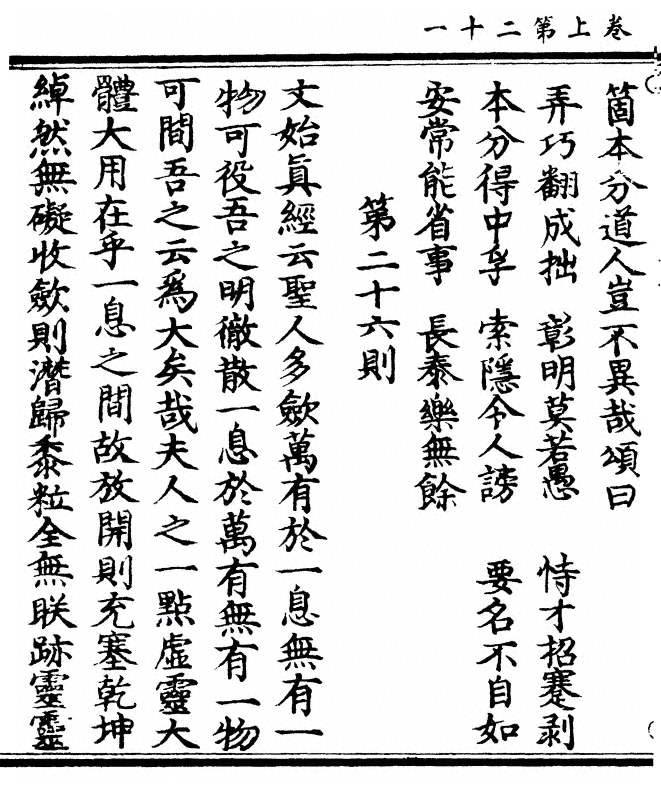 卷上第二十一
箇本分道人豈不異哉頌曰
弄巧翻成拙 彰明莫若愚 恃才招蹇剥
本分得中孚 索隱令人謗 要名不自如
安常能省事 長泰樂無餘
第二十六則
文始眞經云聖人多歛萬有於一息無有一
物可役吾之明徹散一息於萬有無有一物
可間吾之云爲大矣哉夫人之一點虛靈大
體大用在乎一息之間故放開則充塞乾坤
綽然無礙收歛則潛歸黍粒全無眹跡靈靈